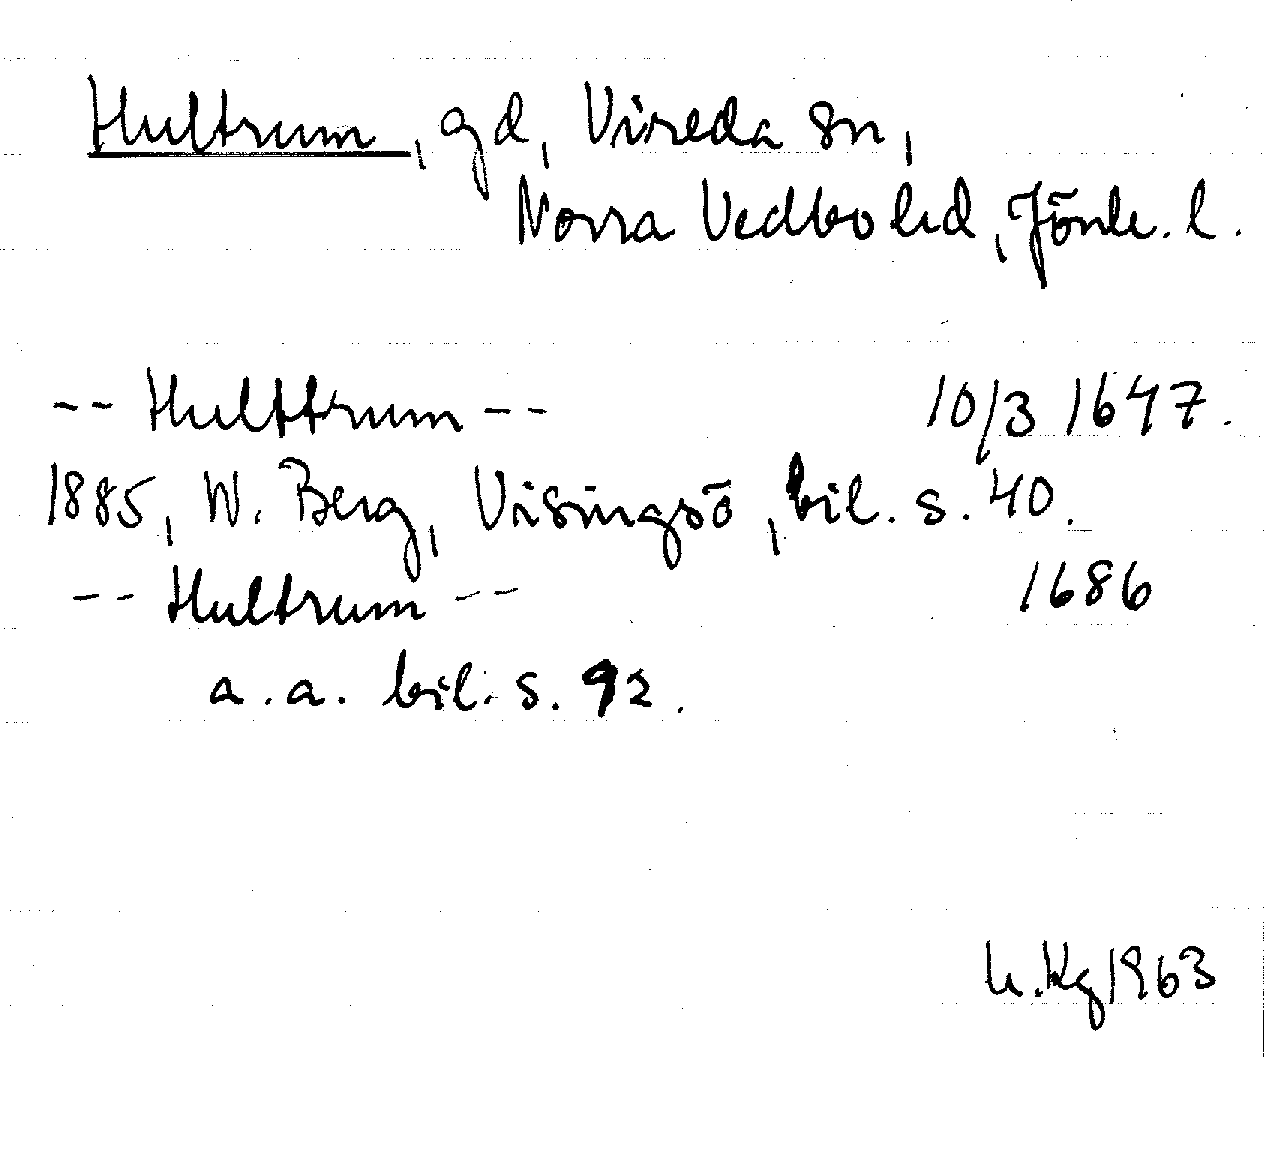 Hultrum, gd, Vireda sn,
Norra Vedbo hd, Jönk. l.
-- Hulttrum -- 10/3 1647.
1885, W. Berg, Visingsö, bil. s. 40.
-- Hultrum -- 1686
a.a. bil. s. 92.
h.Kg 1963